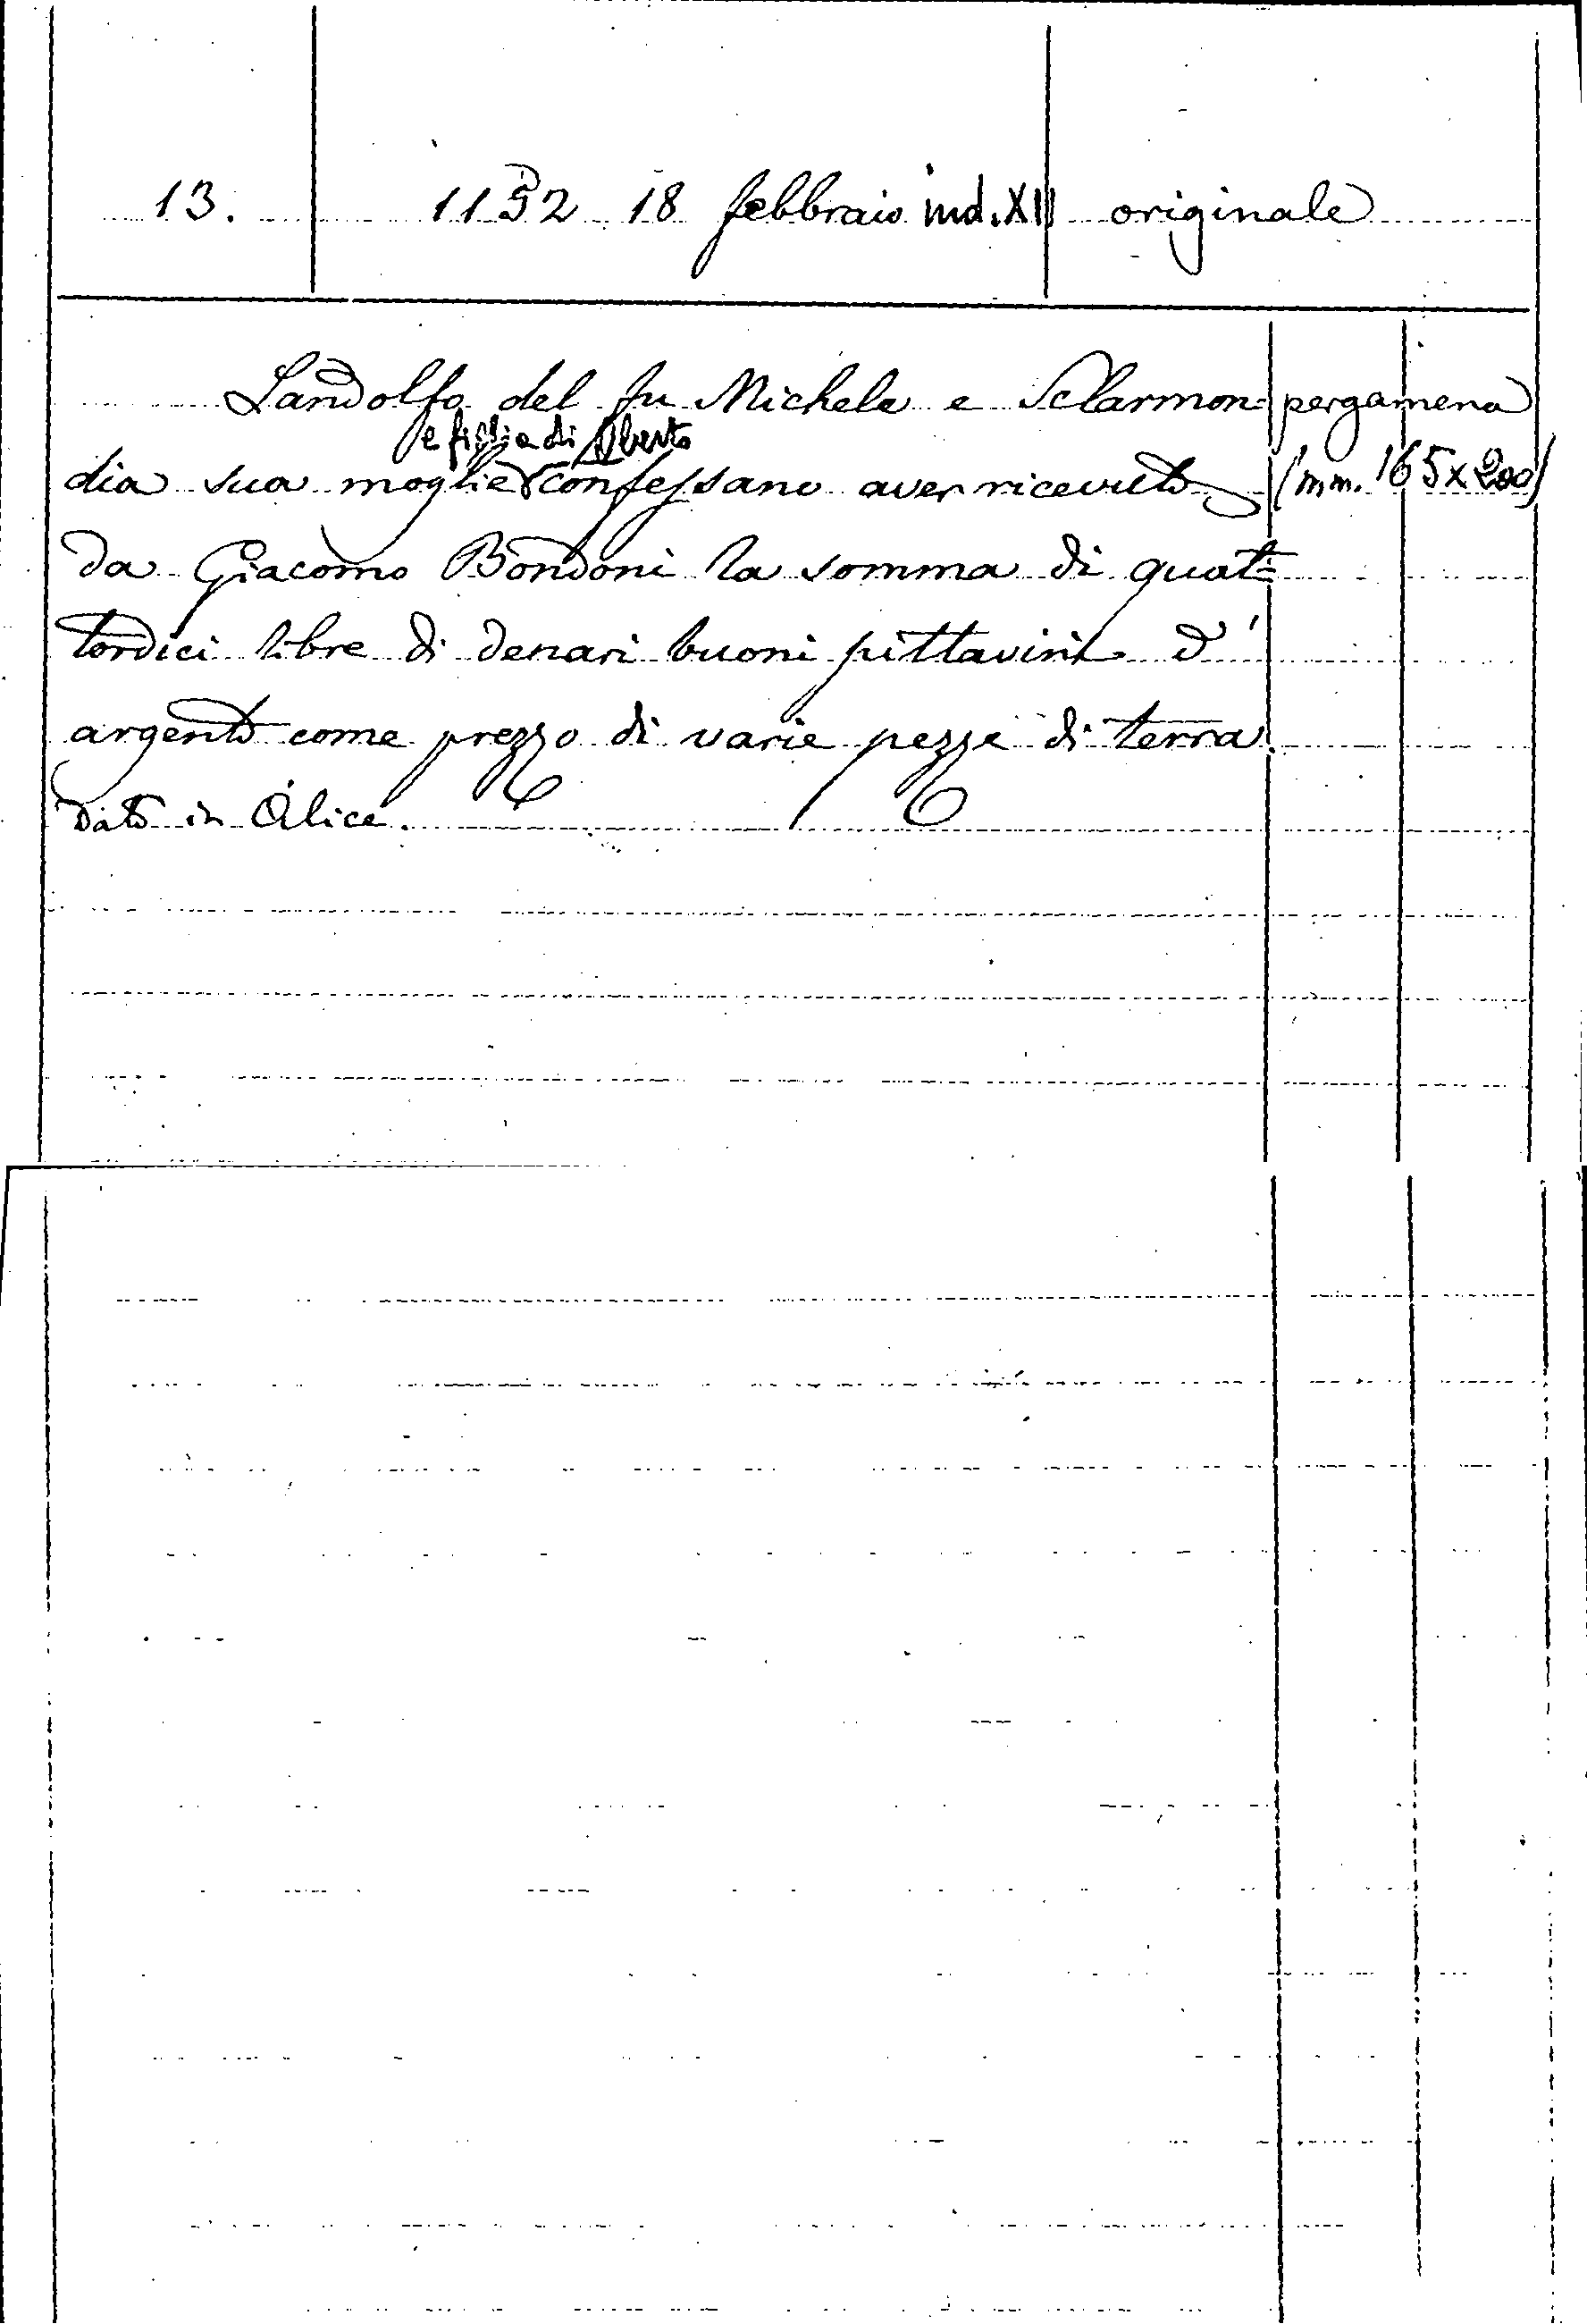 13. 1152 18 febbraio ind. XIII originale
Landolfo del fu Michele e Sclarmon pergamena
e figlia di Oberto
dia sua moglie confessano aver ricevuto (mm. 165x200)
da Giacomo Bondoni la somma di quat=
tordici libre di denari buoni pittavini d'
argento come prezzo di varie pezze di terra.
Dato in Alice.